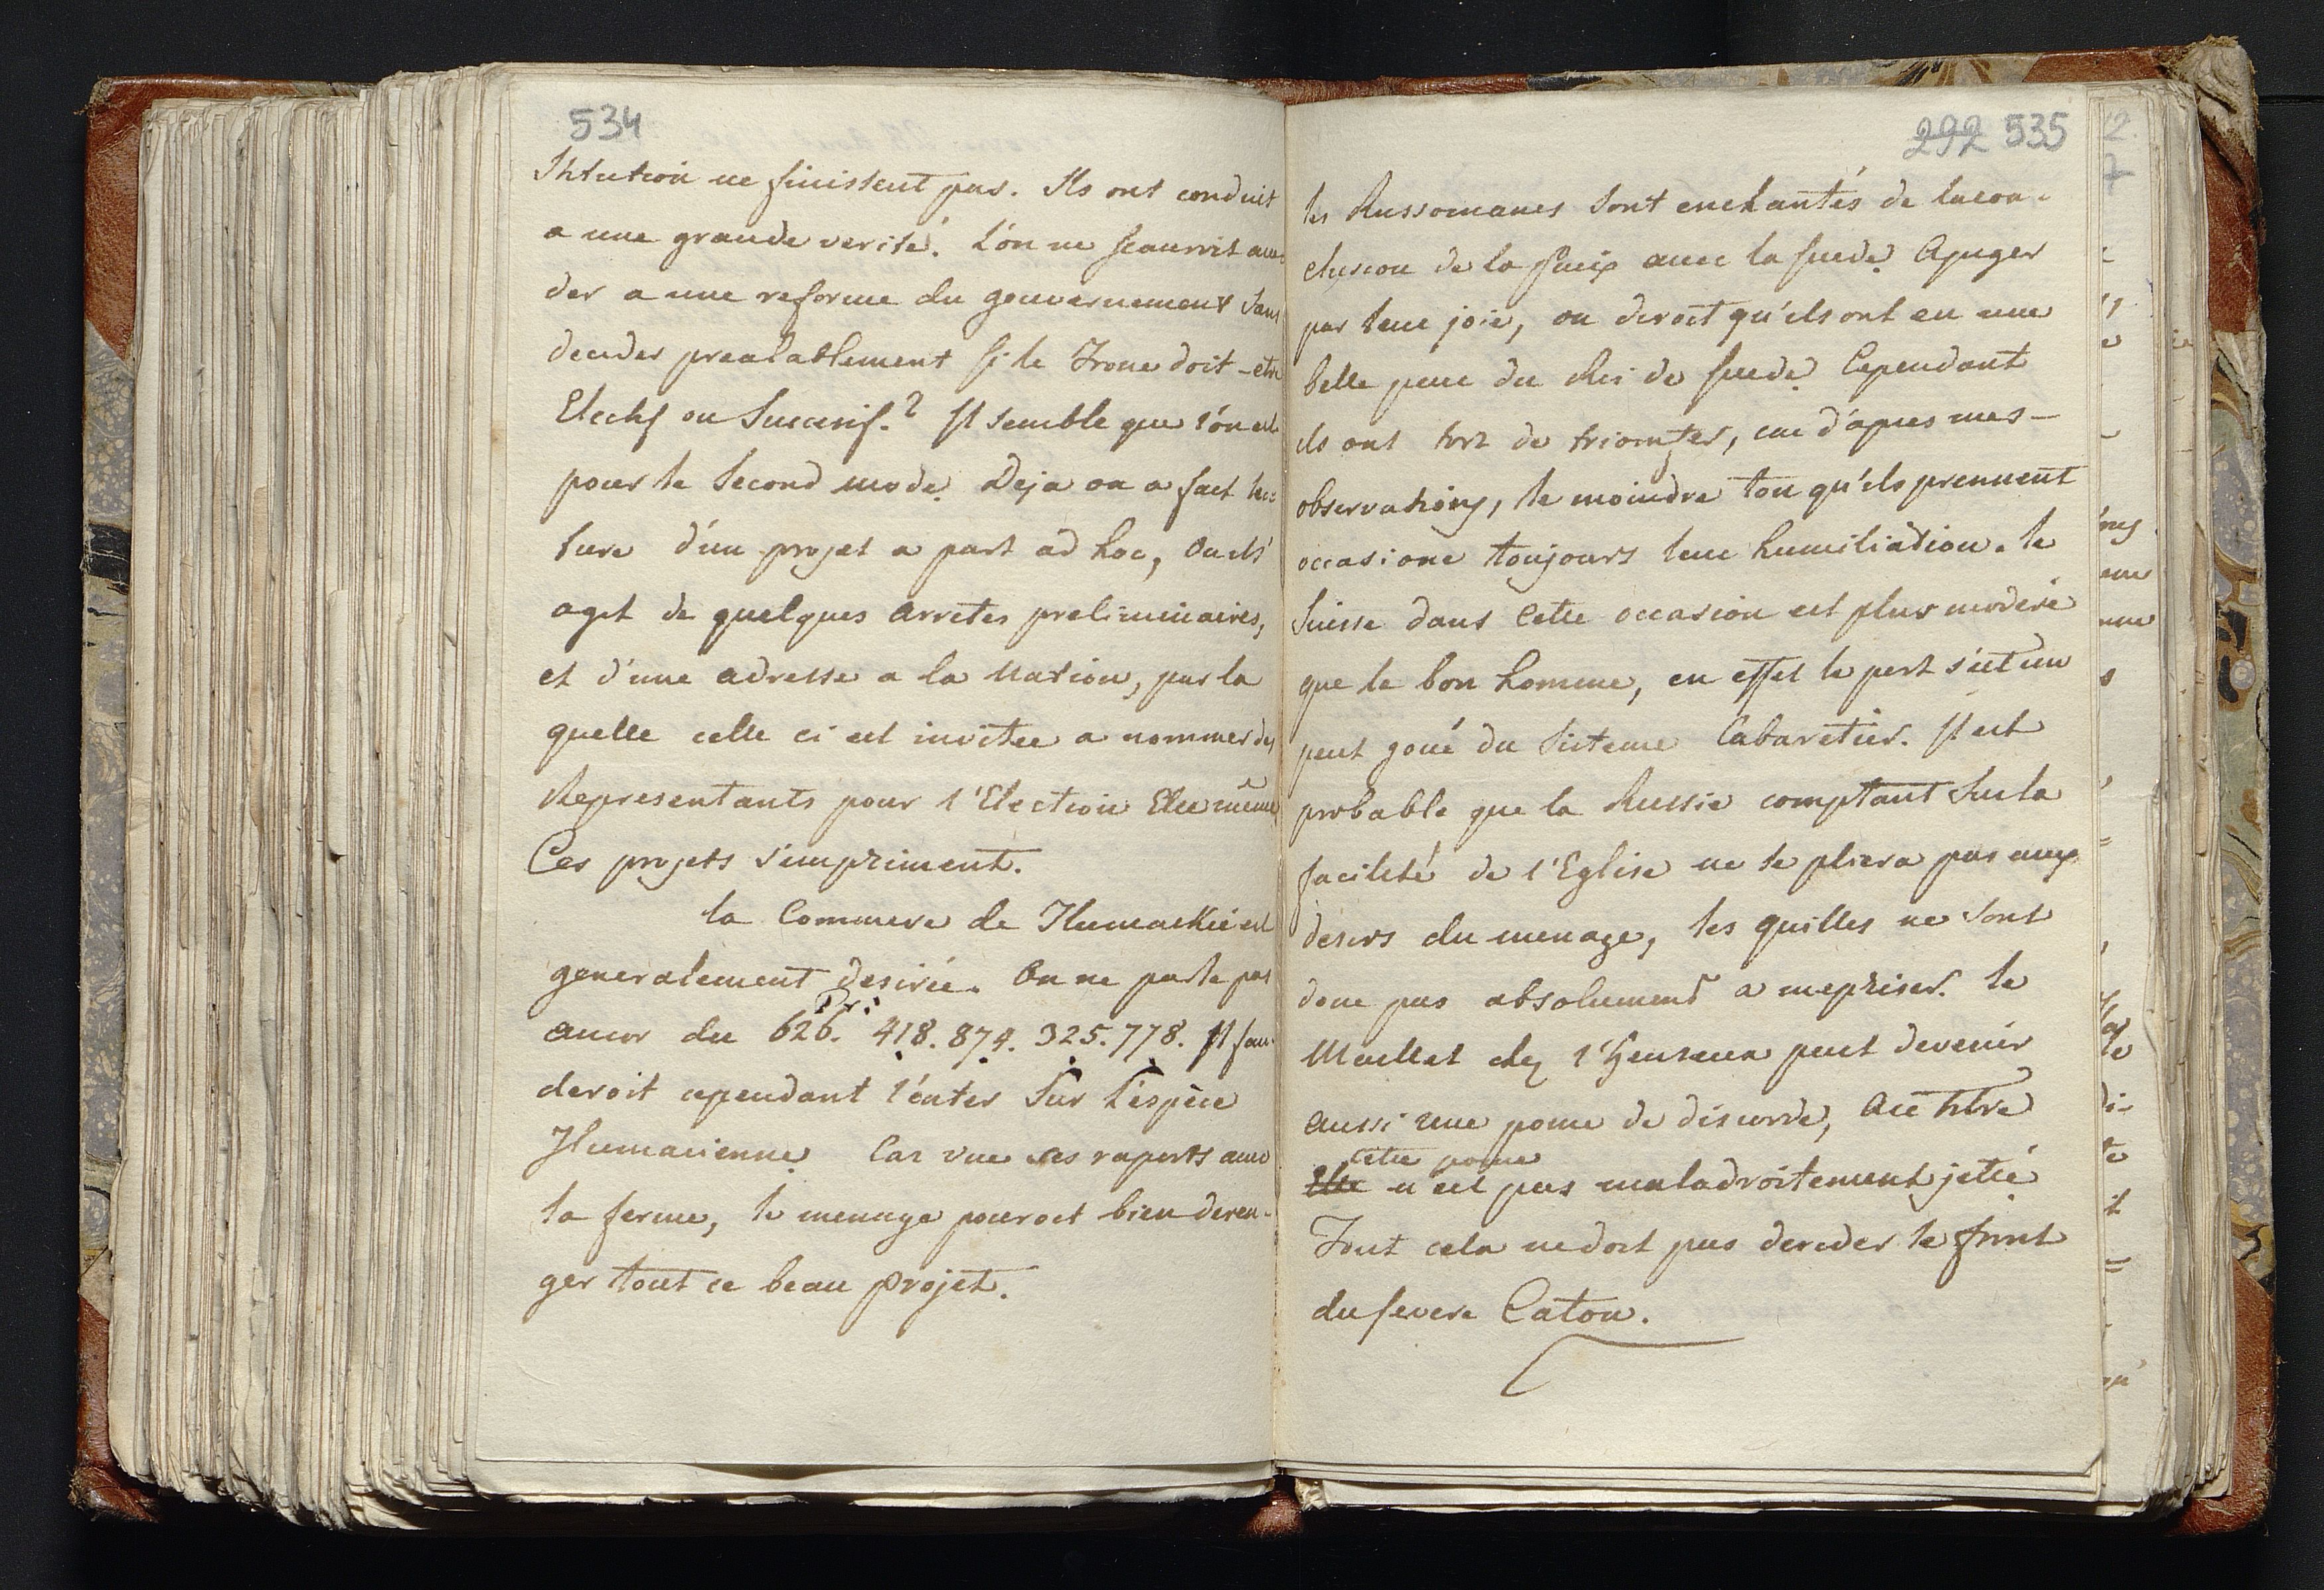 534
stitution ne finissent pas. Ils ont conduit
a une grande verité. L'on ne scauroit
der a une reforme du gouvernement sans
decider prealablement si le Trone doit-etre
Electif ou Successif? Il semble que l'on est
pour le second mode. Deja on a fait lec=
ture d'un projet a part ad hoc, ou il s'
agit de quelques arretes preliminaires,
et d'une adresse a la Nation, par la
quelle celle ci est invitee a nommer des
Representants pour l'Election Elle même
Ces projets s'impriment.
la Commere de est
generalement desirée. On ne parle pas
encor du 626. 418. 874. 325. 778. Il fau-
deroit cependant l'enter sur l'espèce
Car vue ses raports avec
la ferme, le menage pouroit bien deren-
ger tout ce beau projet.
292 535
les Russomanes sont enchantés de la con-
clusion de la paix avec la suede. A juger
par leur joie, on diroit qu'ils ont eu une
belle peur du Roi de suede. Cependant
ils ont tort de triomfer, car d'apres mes-
observations, le moindre ton qu'ils prennent
occasione toujours leur humiliation. le
Suisse dans cette occasion est plus moderé
que le bon homme, en effet le s'est un
peut du Sisteme Cabaretier. Il est
probable que la Russie comptant sur la
facilité de l'Eglise ne se pliera pas aux
desirs du menage, les quilles ne sont
donc pas absolument a mepriser. le
Maillet chez peut devenir
aussi une pome de discorde, a ce titre
cette pome
Elle n'est pas maladroitement jetté
Tout cela ne doit pas derider le front
du severe Caton.